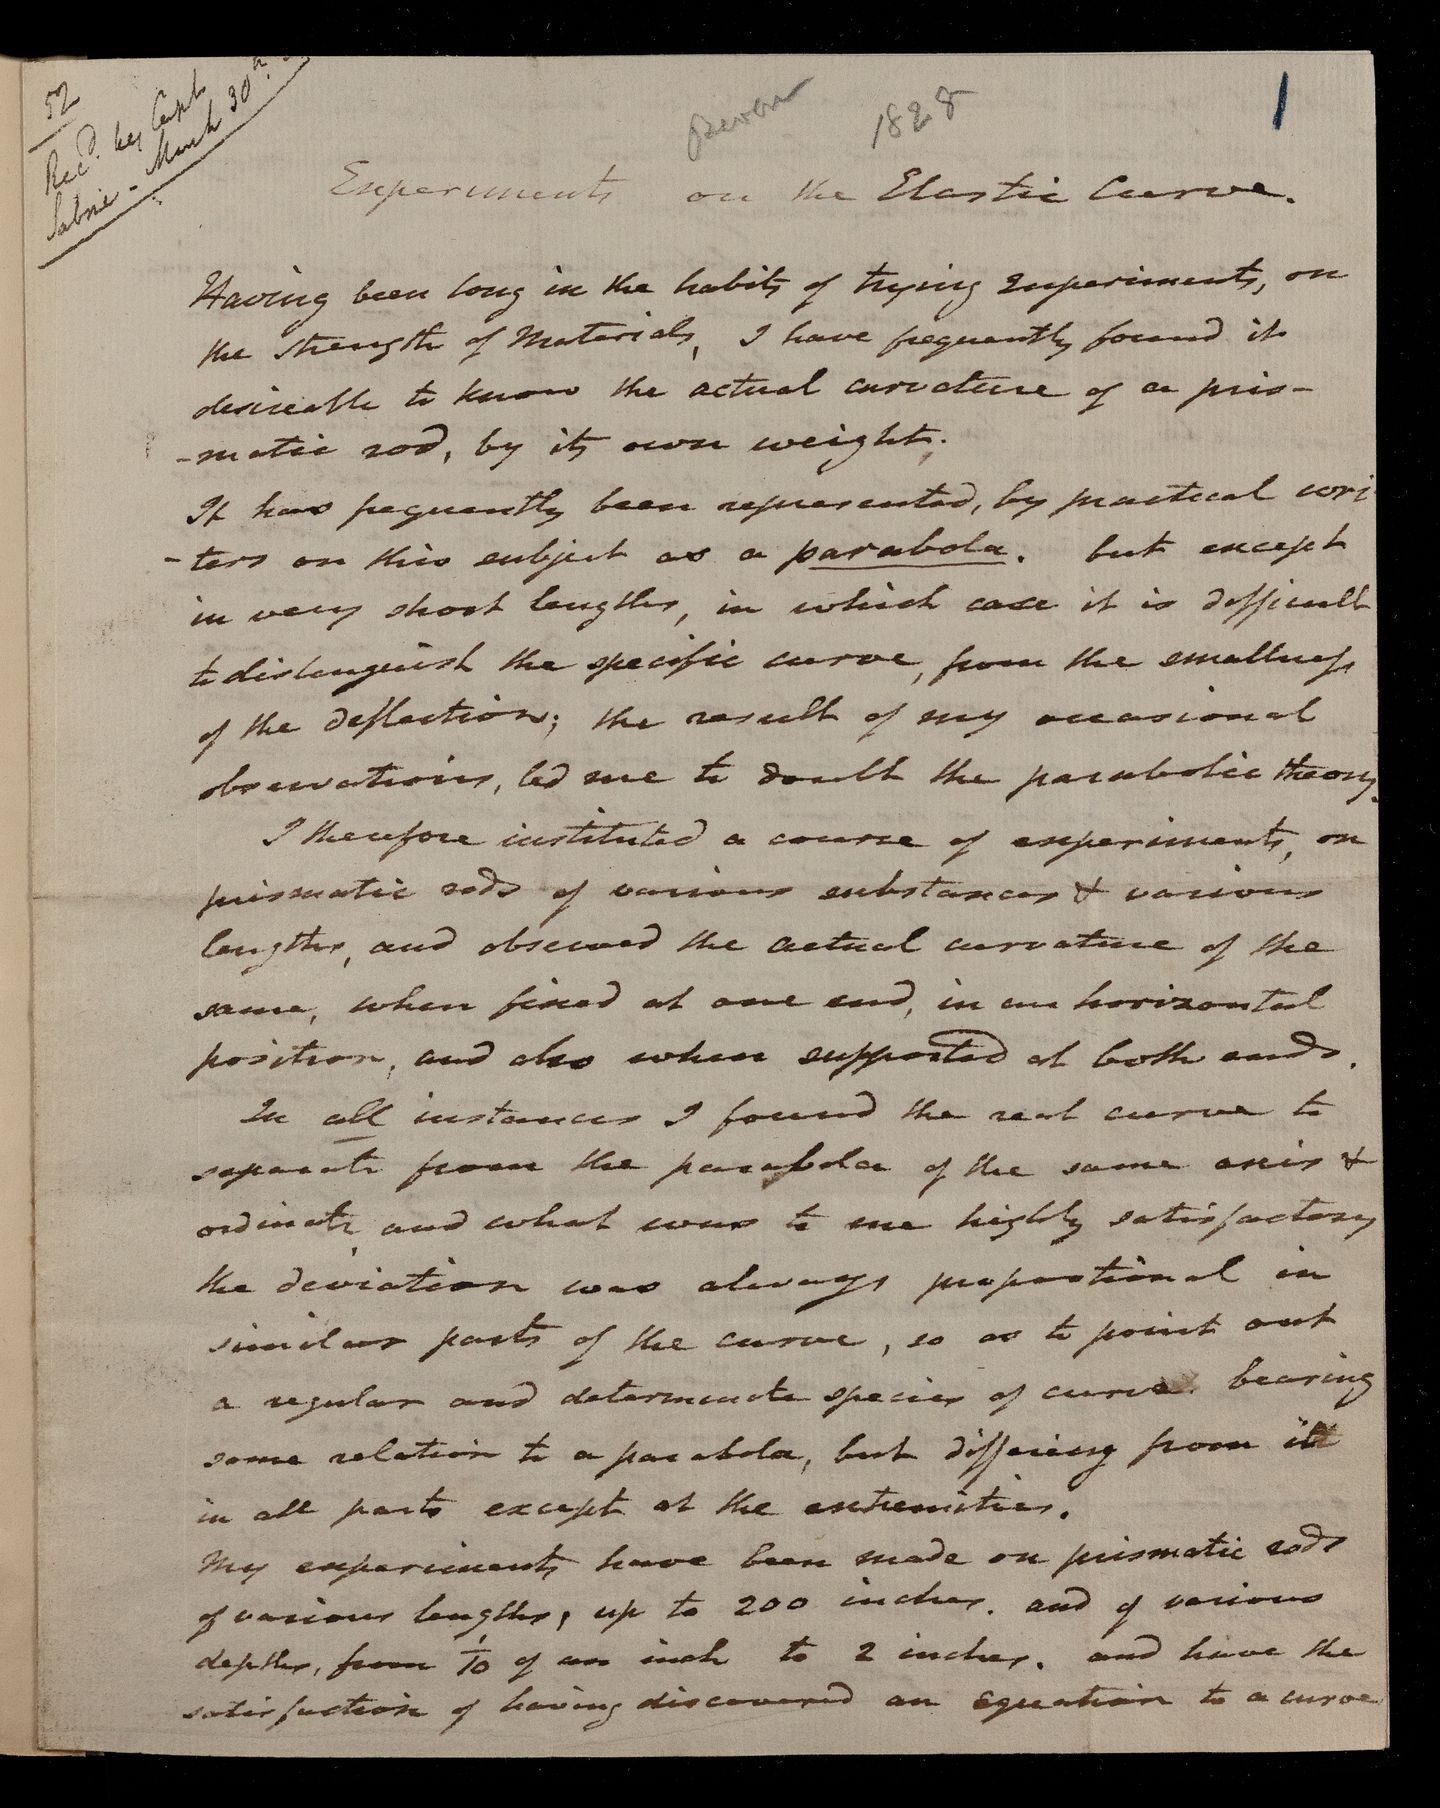 52
Recd. by Capt
Sabine - March 30th
1828
1
Experiments on the Elastic Curve.
Having been long in the habits of trying Experiments, on
the strength of Materials, I have frequently found it
desireable to know the actual curvature of a pris-
-matic rod, by its own weight.
It has frequently been represented, by practical wri
-ters on this subject as a parabola. but except
in very short lengths, in which case it is difficult
to distinguish the specific curve, from the smallness
of the deflection; the result of my occasional
observations, led me to doubt the parabolic theory.
I therefore instituted a course of experiments, on
prismatic rods of various substances & various
lengths, and observed the actual curvature of the
same, when fixed at one end, in an horizontal
position, and also when supported at both ends.
In all instances I found the real curve to
separate from the parabola of the same axis &
ordinate, and what was to me highly satisfactory
the deviation was always proportional in
similar parts of the curve, so as to point out
a regular and determinate species of curve bearing
some relation to a parabola, but differing from it
in all parts except at the extremities.
My experiments have been made on prismatic rods
of various lengths, up to 200 inches. and of various
depths, from 1/10 of an inch to 2 inches. and have the
satisfaction of having discovered an Equation to a curve